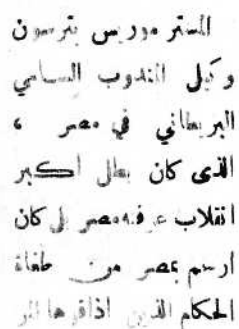 المستر موريس بترسون
وكيل المندوب السامي
البريطاني في مصر ،
الذى كان بطل اكبر
انقلاب عرفه مصر بل كان
ارحم بمصر من طغاة
الحكام الذين اذاقوها المر